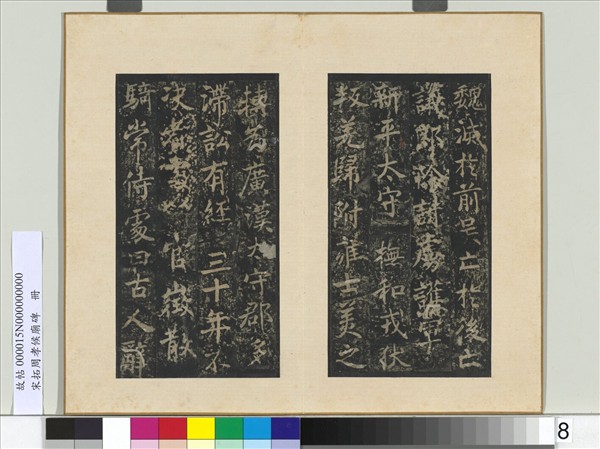 魏滅於前吳亡於後亡
議郎除討虜護軍
新平太守撫和戎狄
叛羌歸附雍土美之
轉為廣漢太守郡多
滯訟有經三十年不
決官徵散
騎常侍處曰古人辭
故帖 000015N000000000
宋拓周孝侯廟碑 冊
8